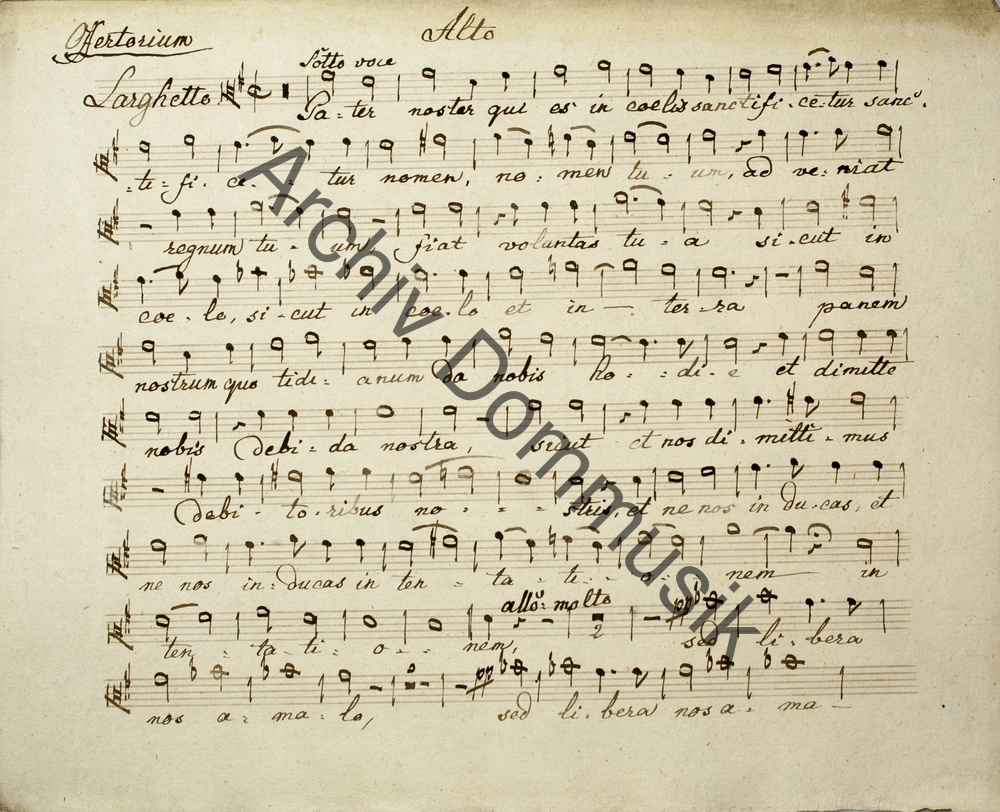 Offertorium
Alto
Sotto voce
Larghetto
Pa - ter noster qui es in coelis sanctifi - ce - tur sanc
- ti - fi - ce - tur nomen, no - men tu - um, ad ve - niat
regnum tu - um, fiat voluntas tu - a si - cut in
coe - lo, si - cut in coe - lo et in - ter - ra panem
nostrum quo tidi - anum da nobis ho - di - e et dimitte
nobis debi - da nostra, sicut et nos di - mitti - mus
debi - to - ribus no - stris, et ne nos in du - cas, et
ne nos in - ducas in ten - ta - ti - o - nem in
allo: molto
ten - ta - ti - o - nem, 2 pp sed li - bera
nos a - ma - lo, pp sed li - bera nos a - ma -
Archiv Dommusik